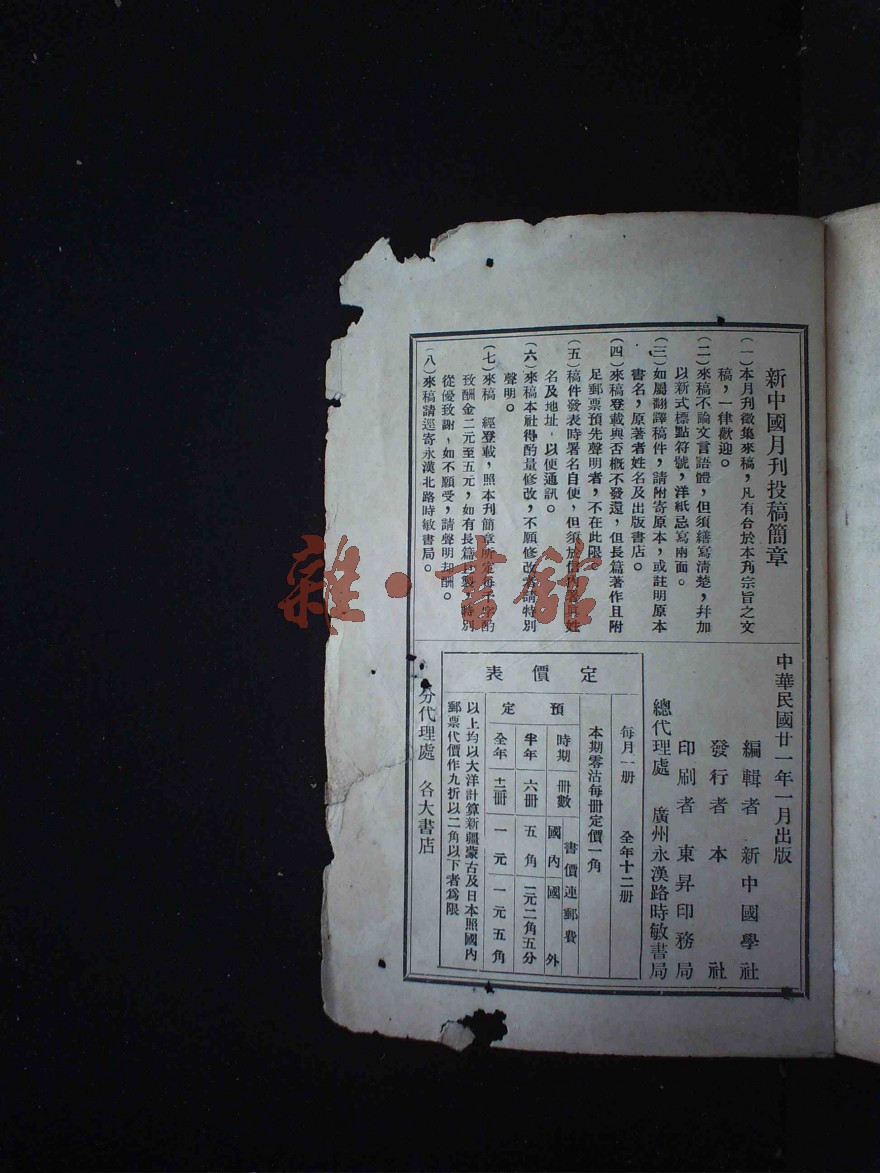 新中國月刊投稿簡章
(一)本月刊徵集來稿,凡有合於本刋宗旨之文
稿,一律歡迎。
(二)來稿不論文言語體,但須繕寫清楚,幷加
以新式標點符號,洋紙忌寫兩面。
(三)如屬翻譯稿件,請附寄原本,或註明原本
書名,原著者姓名及出版書店。
(四)來稿登載與否概不發還,但長篇著作且附
足郵票預先聲明者,不在此限
(五)稿件發表時署名自便,但須於信內署眞姓
名及地址,以便通訊。
(六)來稿本社得酌量修改,不願修改者請特別
聲明。
(七)來稿 經登載,照本刊簡章所定每千字酌
致酬金二元至五元,如有長篇 製,特別
從優致謝,如不願受,請聲明却酬。
(八)來稿請逕寄永漢北路時敏書局。
中華民國廿一年一月出版
編輯者 新中國學社
發行者 本 社
印刷者 東昇印務局
總代理處 廣州永漢路時敏書局
定價表
每月一册 全年十二册
本期零沽每冊定價一角
預定
時期 冊數 書價連郵費
國內 國外
半年 六冊 五角 一元二角五分
全年 十二冊 一元 一元五角
以上均以大洋計算新疆蒙古及日本照國內
郵票代價作九折以二角以下者爲限
分代理處 各大書店
雜·書館